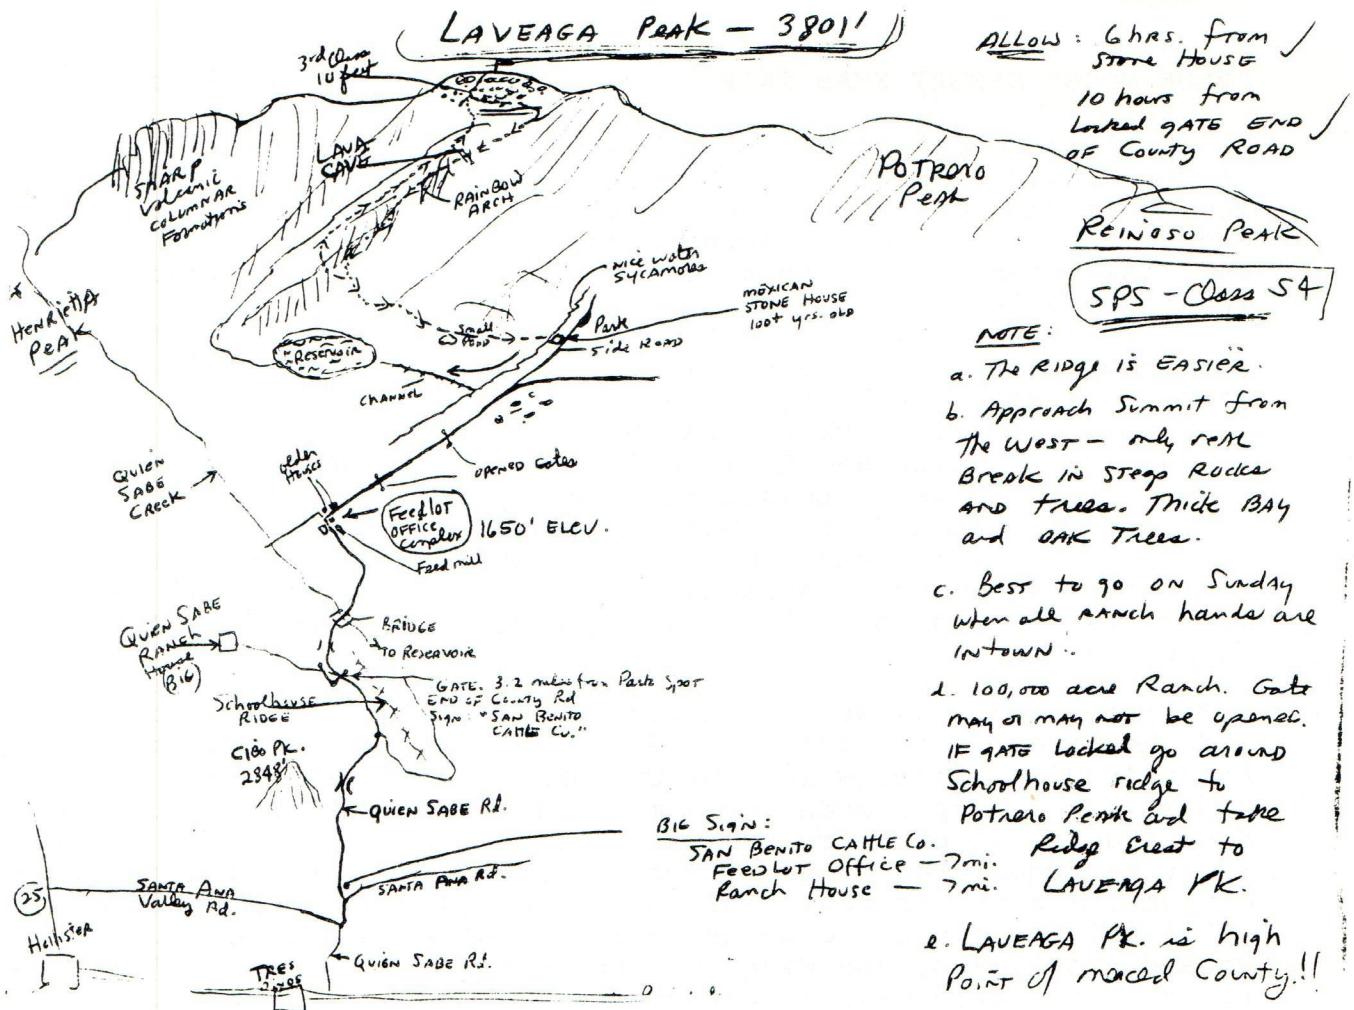 LAVEAGA PEAK - 3801'
ALLOW: 6 hrs. from
STONE HOUSE
10 hours from
Locked GATE END
OF COUNTY ROAD
3rd Class
10 feet
LAVA
CAVE
SHARP
Volcanic
COLUMNAR
Formations
RAINBOW
ARCH
POTRERO
PEAK
REINOSO PEAK
SPS - Class S4
HENRIETTA
PEAK
NICE WATER
SYCAMORES
MEXICAN
STONE HOUSE
100+ yrs. OLD
Small
POND
Park
Side ROAD
Reservoir
CHANNEL
QUIEN
SABE
CREEK
older
Houses
OPENED Gates
FeedLOT
OFFICE
Complex
1650' ELEV.
Feed mill
QUIEN SABE
RANCH
House
(BIG)
BRIDGE
TO RESERVOIR
GATE. 3.2 miles from Park Spot
END OF County Rd
Sign: "SAN BENITO
CATTLE Co."
Schoolhouse
RIDGE
CIBO PK.
2848'
QUIEN SABE Rd.
SANTA ANA Rd.
SANTA ANA
Valley Rd.
25
Hollister
QUIEN SABE Rd.
TRES
PINOS
BIG Sign:
SAN BENITO CATTLE Co.
FEEDLOT OFFICE - 7mi.
Ranch House - 7mi.
NOTE:
a. The RIDGE IS EASIER.
b. Approach Summit from
the WEST - only real
Break in Steep Rocks
AND trees. Thick BAY
and OAK Trees.
c. Best to go ON Sunday
when all RANCH hands are
IN TOWN.
d. 100,000 acre Ranch. Gate
may or may not be opened.
IF GATE Locked go around
Schoolhouse ridge to
Potrero Peak and take
Ridge Crest to
LAVEAGA PK.
e. LAVEAGA PK. is high
Point of Merced County!!